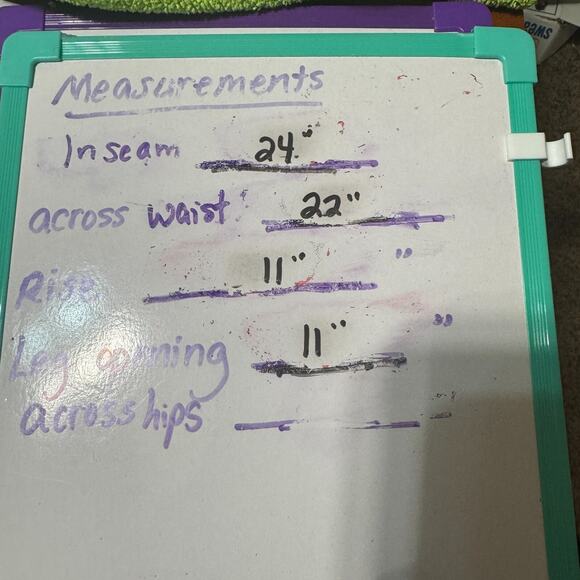 Measurements
Inseam 24"
across waist 22"
Rise 11" "
Leg opening 11" "
across hips "